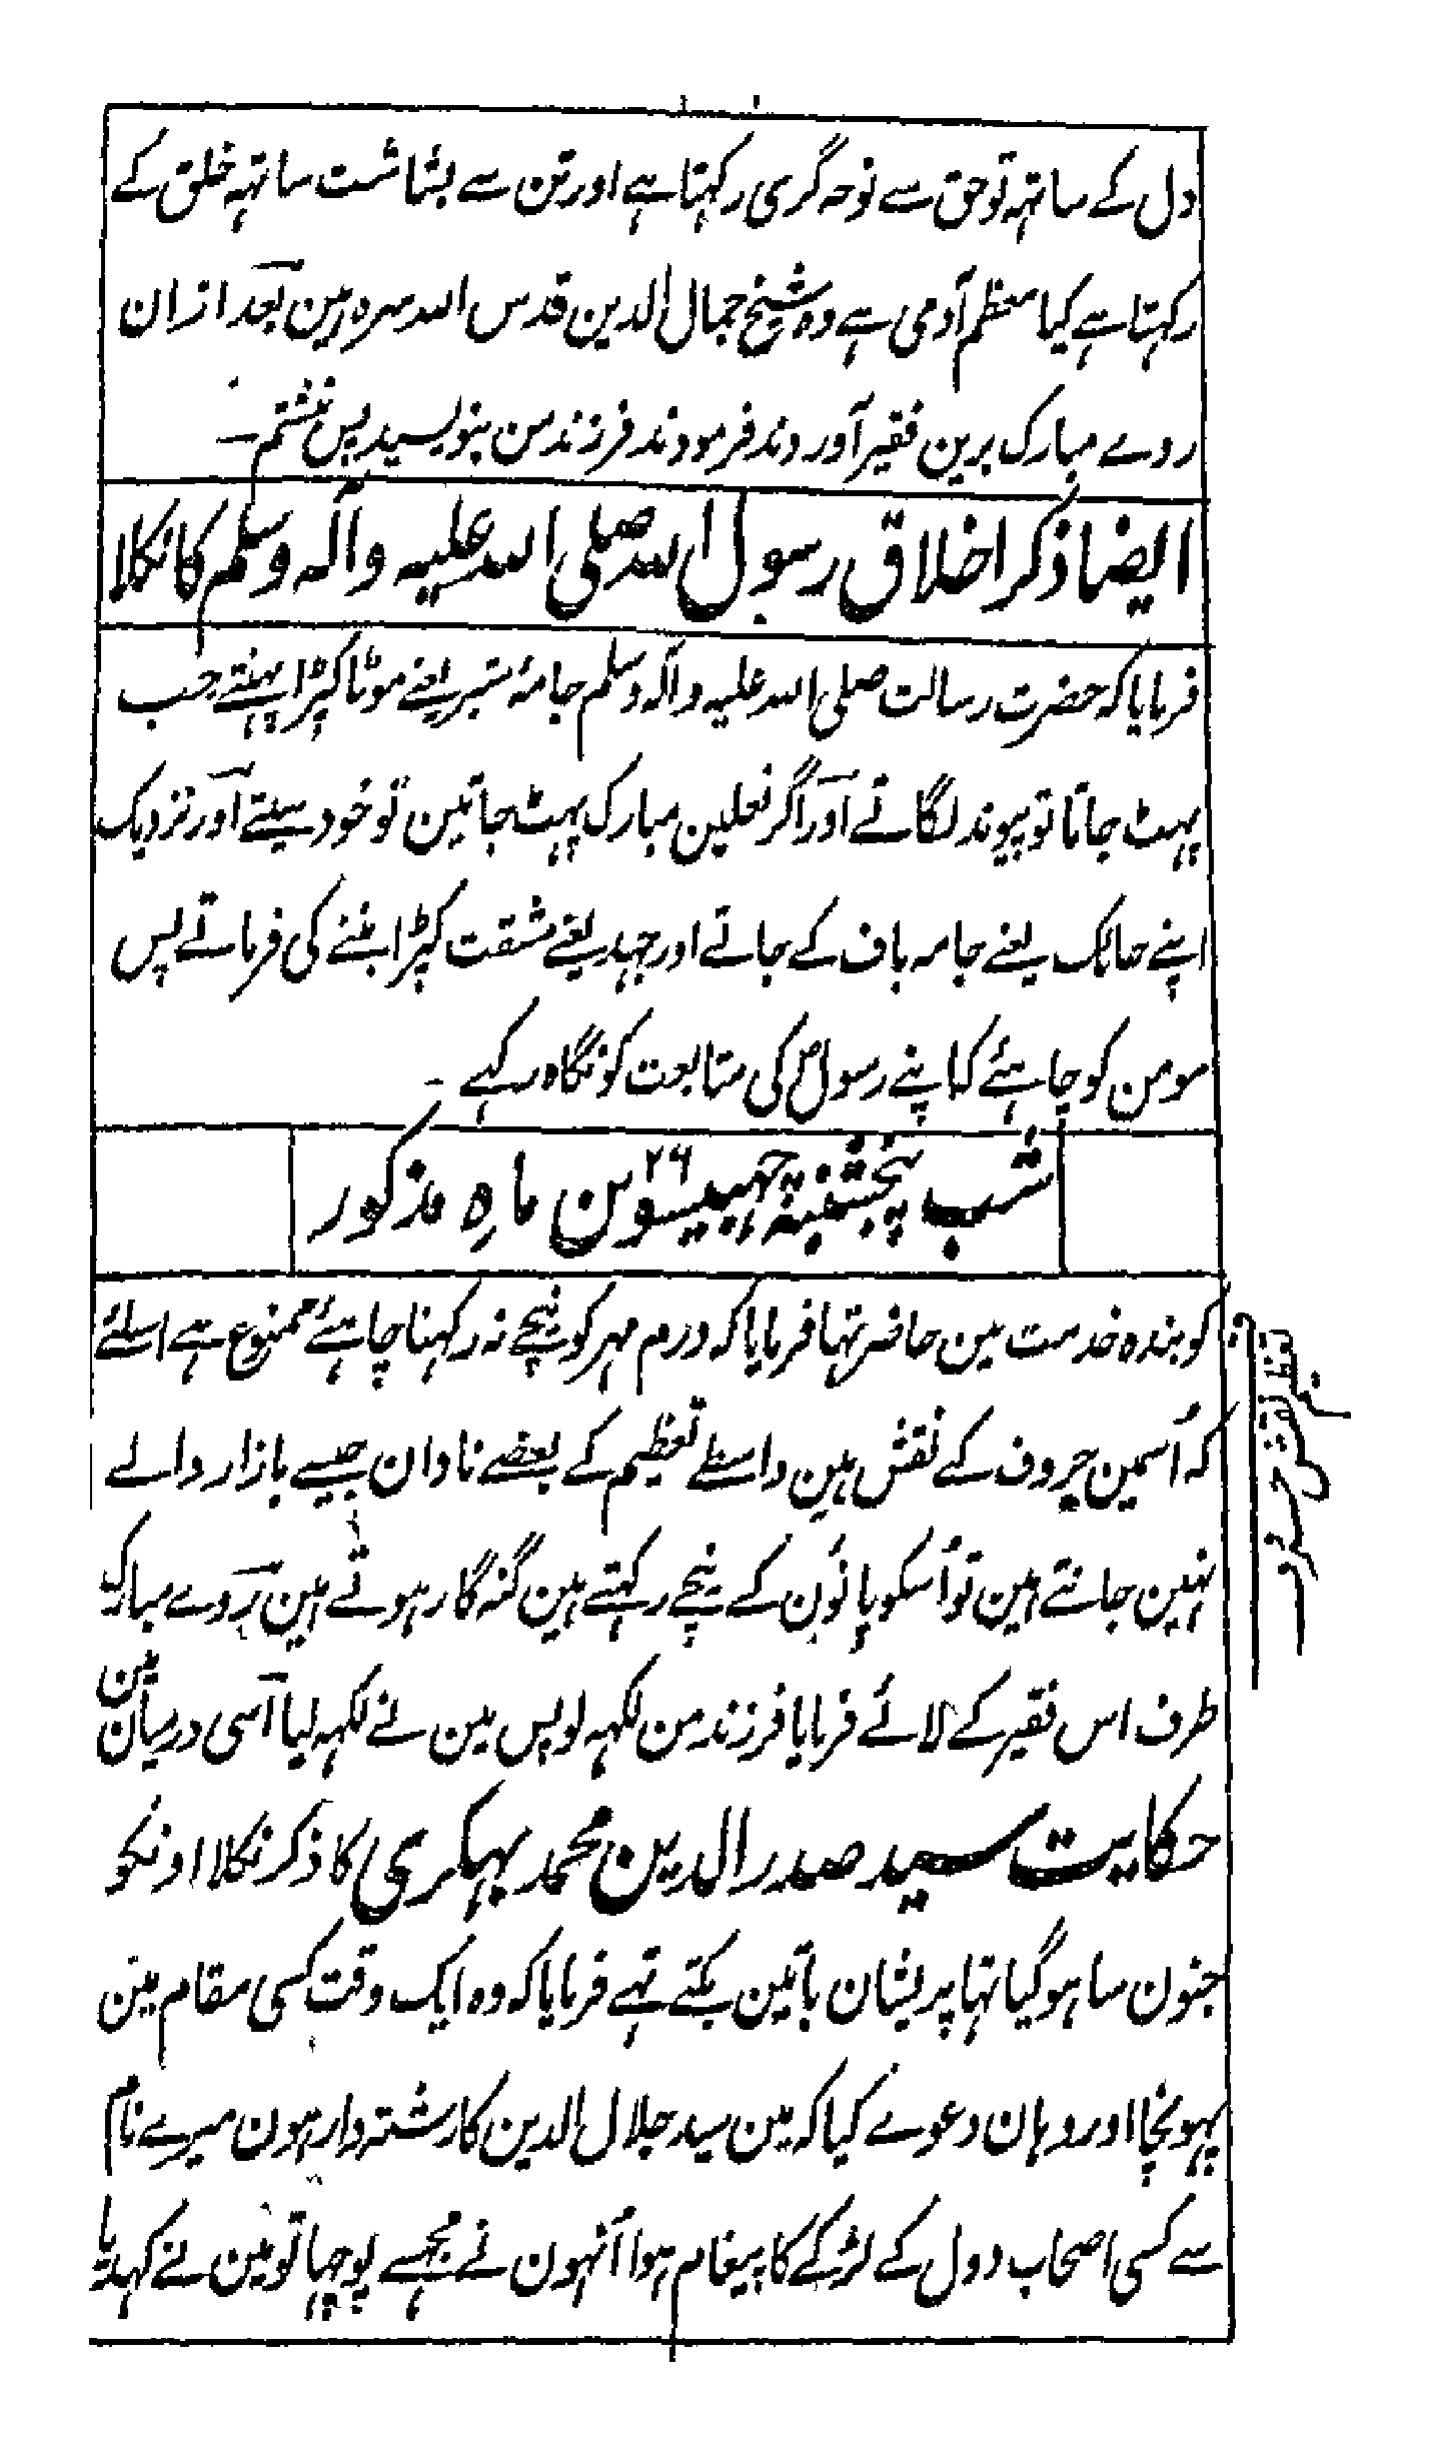 دل کے ساتہہ تو حق سے نوحہ گری رکہتا ہے اور تن سے بشاشت ساتہہ خلق کے
رکہتا ہے کیا معظم آدمی ہے وہ شیخ جمال الدین قدس اللہ سرہ مین بعد ازان
روے مبارک برین فقیر آوردند فرمودند فرزند من بنویسید پس نبشتم ۔
ایضا ذکر اخلاق رسول اللہ صلی اللہ علیہ وآلہ وسلم کا نکلا
فرمایا کہ حضرت رسالت صلی اللہ علیہ وآلہ وسلم جامۂ ستبر یعنے موٹا کپڑا پہنتے جب
پہٹ جاتا تو پیوند لگاتے اور اگر نعلین مبارک پہٹ جاتین تو خود سیتے اور نزدیک
اپنے حایک یعنے جامہ باف کے جاتے اور جہد یعنے مشقت کپڑا بننے کی فرماتے پس
مومن کو چاہئے کہ اپنے رسول کی متابعت کو نگاہ رکہے ۔
شب پنجشنبہ چہبیسوین ۲۶ ماہ مذکور
کو بندہ خدمت مین حاضر تہا فرمایا کہ درم مہر کو نیچے نہ رکہنا چاہئے ممنوع ہے اسلئے
کہ اُسمین حروف کے نقش ہین واسطے تعظیم کے بعضے نادان جیسے بازار والے
نہین جانتے ہین تو اُسکو پانوُن کے نیچے رکہتے ہین گنہگار ہوتے ہین روے مبارک
طرف اس فقیر کے لائے فرمایا فرزند من لکہہ لو پس مین نے لکہہ لیا اسی درمیان مین
حکایت سید صدر الدین محمد بہکری کا ذکر نکلا اونکو
جنون سا ہو گیا تہا پریشان باتین بکتے تہے فرمایا کہ وہ ایک وقت کسی مقام مین
پہونچا اور وہان دعوے کیا کہ مین سید جلال الدین کا رشتہ دار ہون میرے نام
سے کسی اصحاب دول کے لڑکے کا پیغام ہوا اُنہون نے مجہسے پوچہا تو مین نے کہدیا